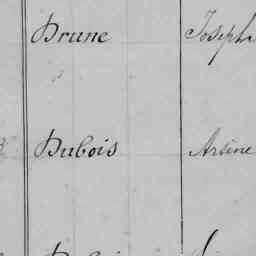 Brune Joseph
Dubois Arsène